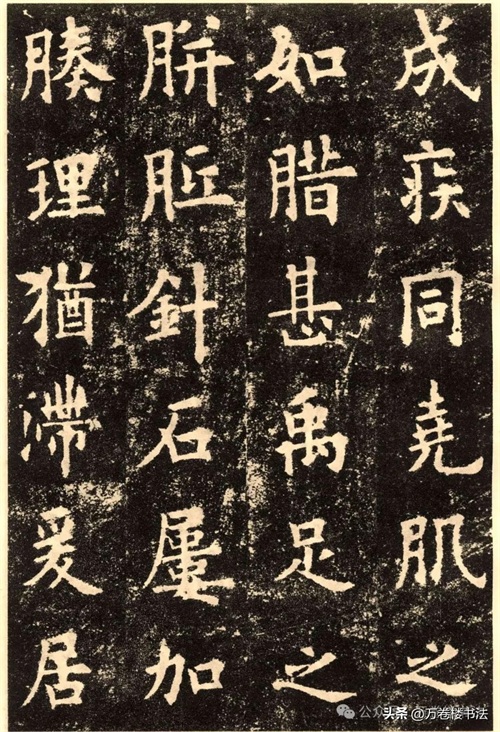 成疾同堯肌之
如腊甚禹足之
胼胝針石屢加
腠理猶滯爰居
头条 @万卷楼书法